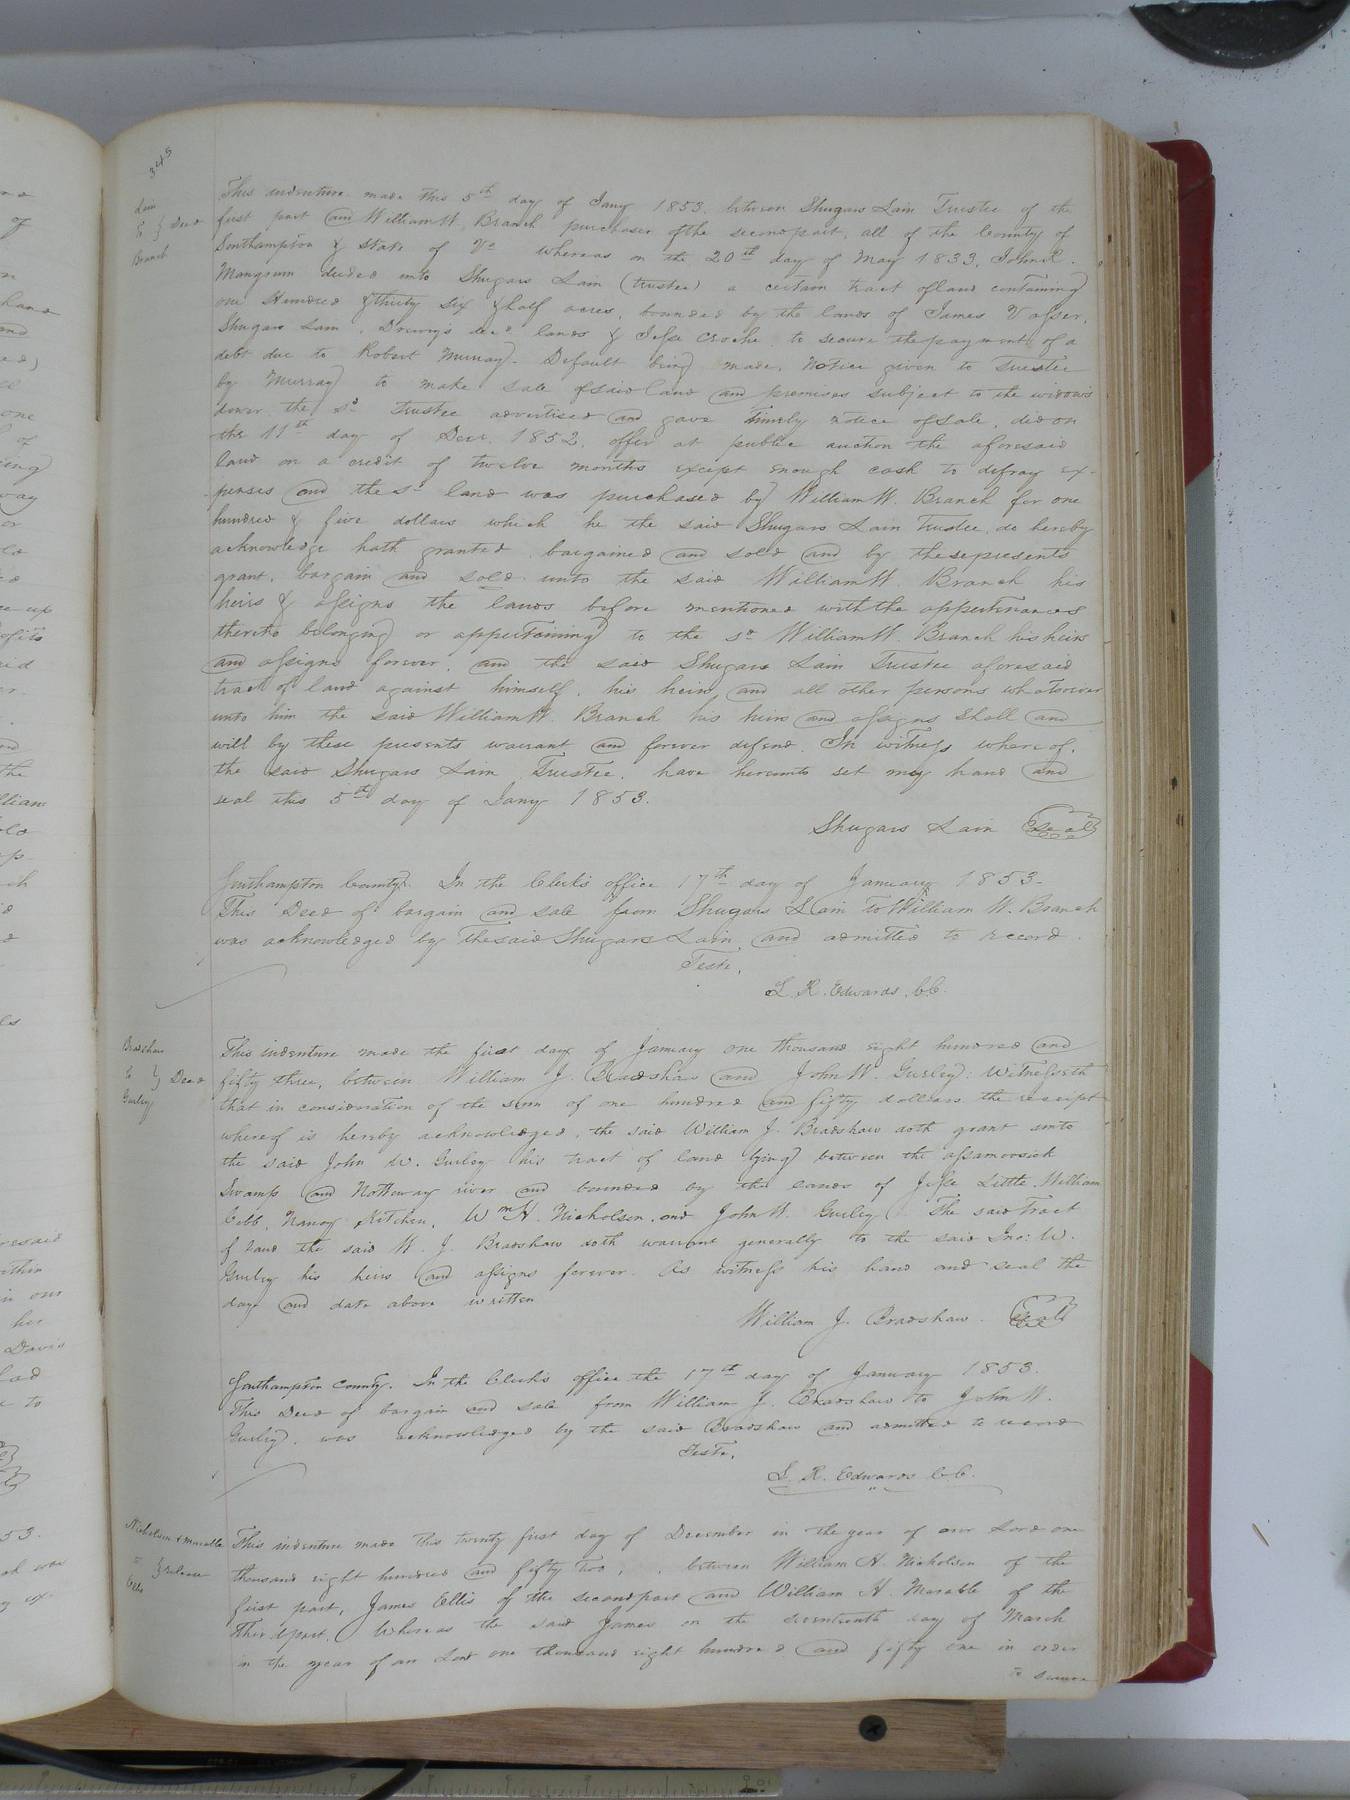 345
Lain
to } Deed
Branch
This indenture made this 5th day of Jany 1853. between Shugars Lain Trustee of the
first part and William W. Branch purchaser of the second part, all of the County of
Southampton & State of Va whereas on the 20th day of May 1833, John R.
Mangrum deeded unto Shugars Lain (trustee) a certain tract of land containing
one Hundred & thirty six & half acres, bounded by the lands of James
Shugars Lain, Drewry's decd. lands & Jesse Croche, to secure the payment of a
debt due to Robert Murray. Default being made, Notice given to Trustee
by Murray to make sale of said land and premises subject to the widows
dower. the sd. trustee advertised and gave timely notice of sale, did on
the 11th day of Decr. 1852, offer at public auction the aforesaid
land on a credit of twelve months except enough cash to defray ex-
penses and the sd. land was purchased by William W. Branch for one
hundred & five dollars which he the said Shugars Lain Trustee, do hereby
acknowledge hath granted, bargained and sold and by these presents
grant, bargain and sold unto the said William W. Branch his
heirs & assigns the lands before mentioned with the appertinances
thereto belonging or appertaining to the sd. William W. Branch his heirs
and assigns forever, and the said Shugars Lain Trustee aforesaid
tract of land against himself, his heirs, and all other persons whatsoever
unto him the said William W. Branch his heirs and assigns Shall and
will by these presents warrant and forever defend. In witness whereof,
the said Shugars Lain Trustee, have hereunto set my hand and
seal this 5th day of Jany 1853.
Shugars Lain Seal
Southampton County. In the Clerk's office 17th day of January 1853-
This Deed of bargain and sale from Shugars Lain to William W. Branch
was acknowledged by the said Shugars Lain, and admitted to record.
Teste,
L. R. Edwards, C.C.
Bradshaw
to } Deed
Gurley
This indenture made the first day of January one thousand eight hundred and
fifty three, between William J. Bradshaw and John W. Gurley: Witnesseth
that in consideration of the sum of one hundred and fifty dollars the receipt
whereof is hereby acknowledged, the said William J. Bradshaw doth grant unto
the said John W. Gurley his tract of land lying between the assamoosick
Swamp and Nottoway river and bounded by the lands of Jesse Little, William
Cobb, Nancy Kitchen, Wm H. Nicholson, and John W. Gurley. The said Tract
of land the said W. J. Bradshaw doth warrant generally to the said Jno: W.
Gurley his heirs and assigns forever. As witness his hand and seal the
day and date above written
William J. Bradshaw. Seal
Southampton County. In the Clerk's office the 17th day of January 1853.
This Deed of bargain and sale from William J. Bradshaw to John W.
Gurley, was acknowledged by the said Bradshaw and admitted to record
Teste,
L. R. Edwards C.C.
Nicholson & Marable
to } release
Ellis
This indenture made this twenty first day of December in the year of our Lord one
thousand eight hundred and fifty two, between William H. Nicholson of the
first part, James Ellis of the second part and William H. Marable of the
third part. Whereas the said James on the seventeenth day of March
in the year of our Lord one thousand eight hundred and fifty one in order
to secure